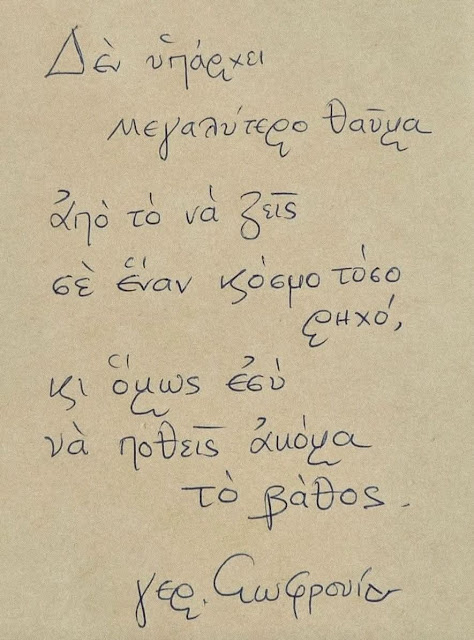 Δὲν ὑπάρχει
μεγαλύτερο θαῦμα
ἀπὸ τὸ νὰ ζεῖς
σὲ ἕναν κόσμο τόσο
ρηχό,
κι ὅμως ἐσὺ
νὰ ποθεῖς ἀκόμα
τὸ βάθος.
γερ. Σωφρονία